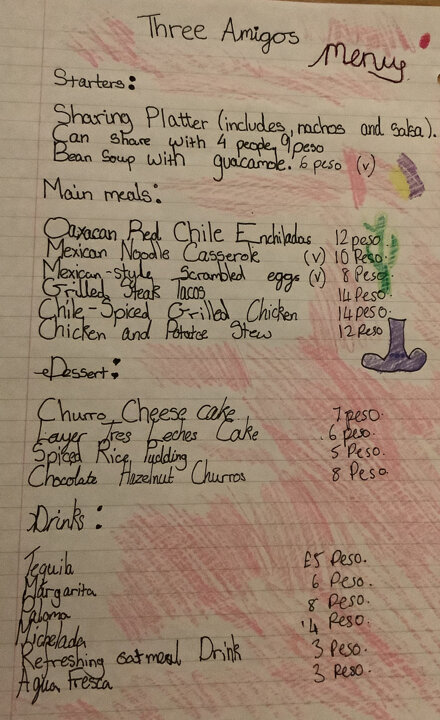 Three Amigos
Menu
Starters:
Sharing Platter (includes, nachos and salsa).
Can share with 4 people, 9 peso
Bean Soup with guacamole. 6 peso (v)
Main meals:
Oaxacan Red Chile Enchiladas 12 peso.
Mexican Noodle Casserole (v) 10 Peso.
Mexican-style Scrambled eggs (v) 8 Peso.
Grilled Steak Tacos 14 Peso.
Chile-Spiced Grilled Chicken 14 peso.
Chicken and Potatoe Stew 12 Peso
Dessert:
Churro Cheese cake 7 peso.
Layer Tres Leches Cake 6 peso.
Spiced Rice Pudding 5 Peso.
Chocolate Hazelnut Churros 8 Peso.
Drinks:
Tequila £5 Peso.
Margarita 6 Peso.
Paloma 8 Peso.
Michelada 4 Peso.
Refreshing oatmeal Drink 3 Peso.
Agua Fresca 3 Peso.